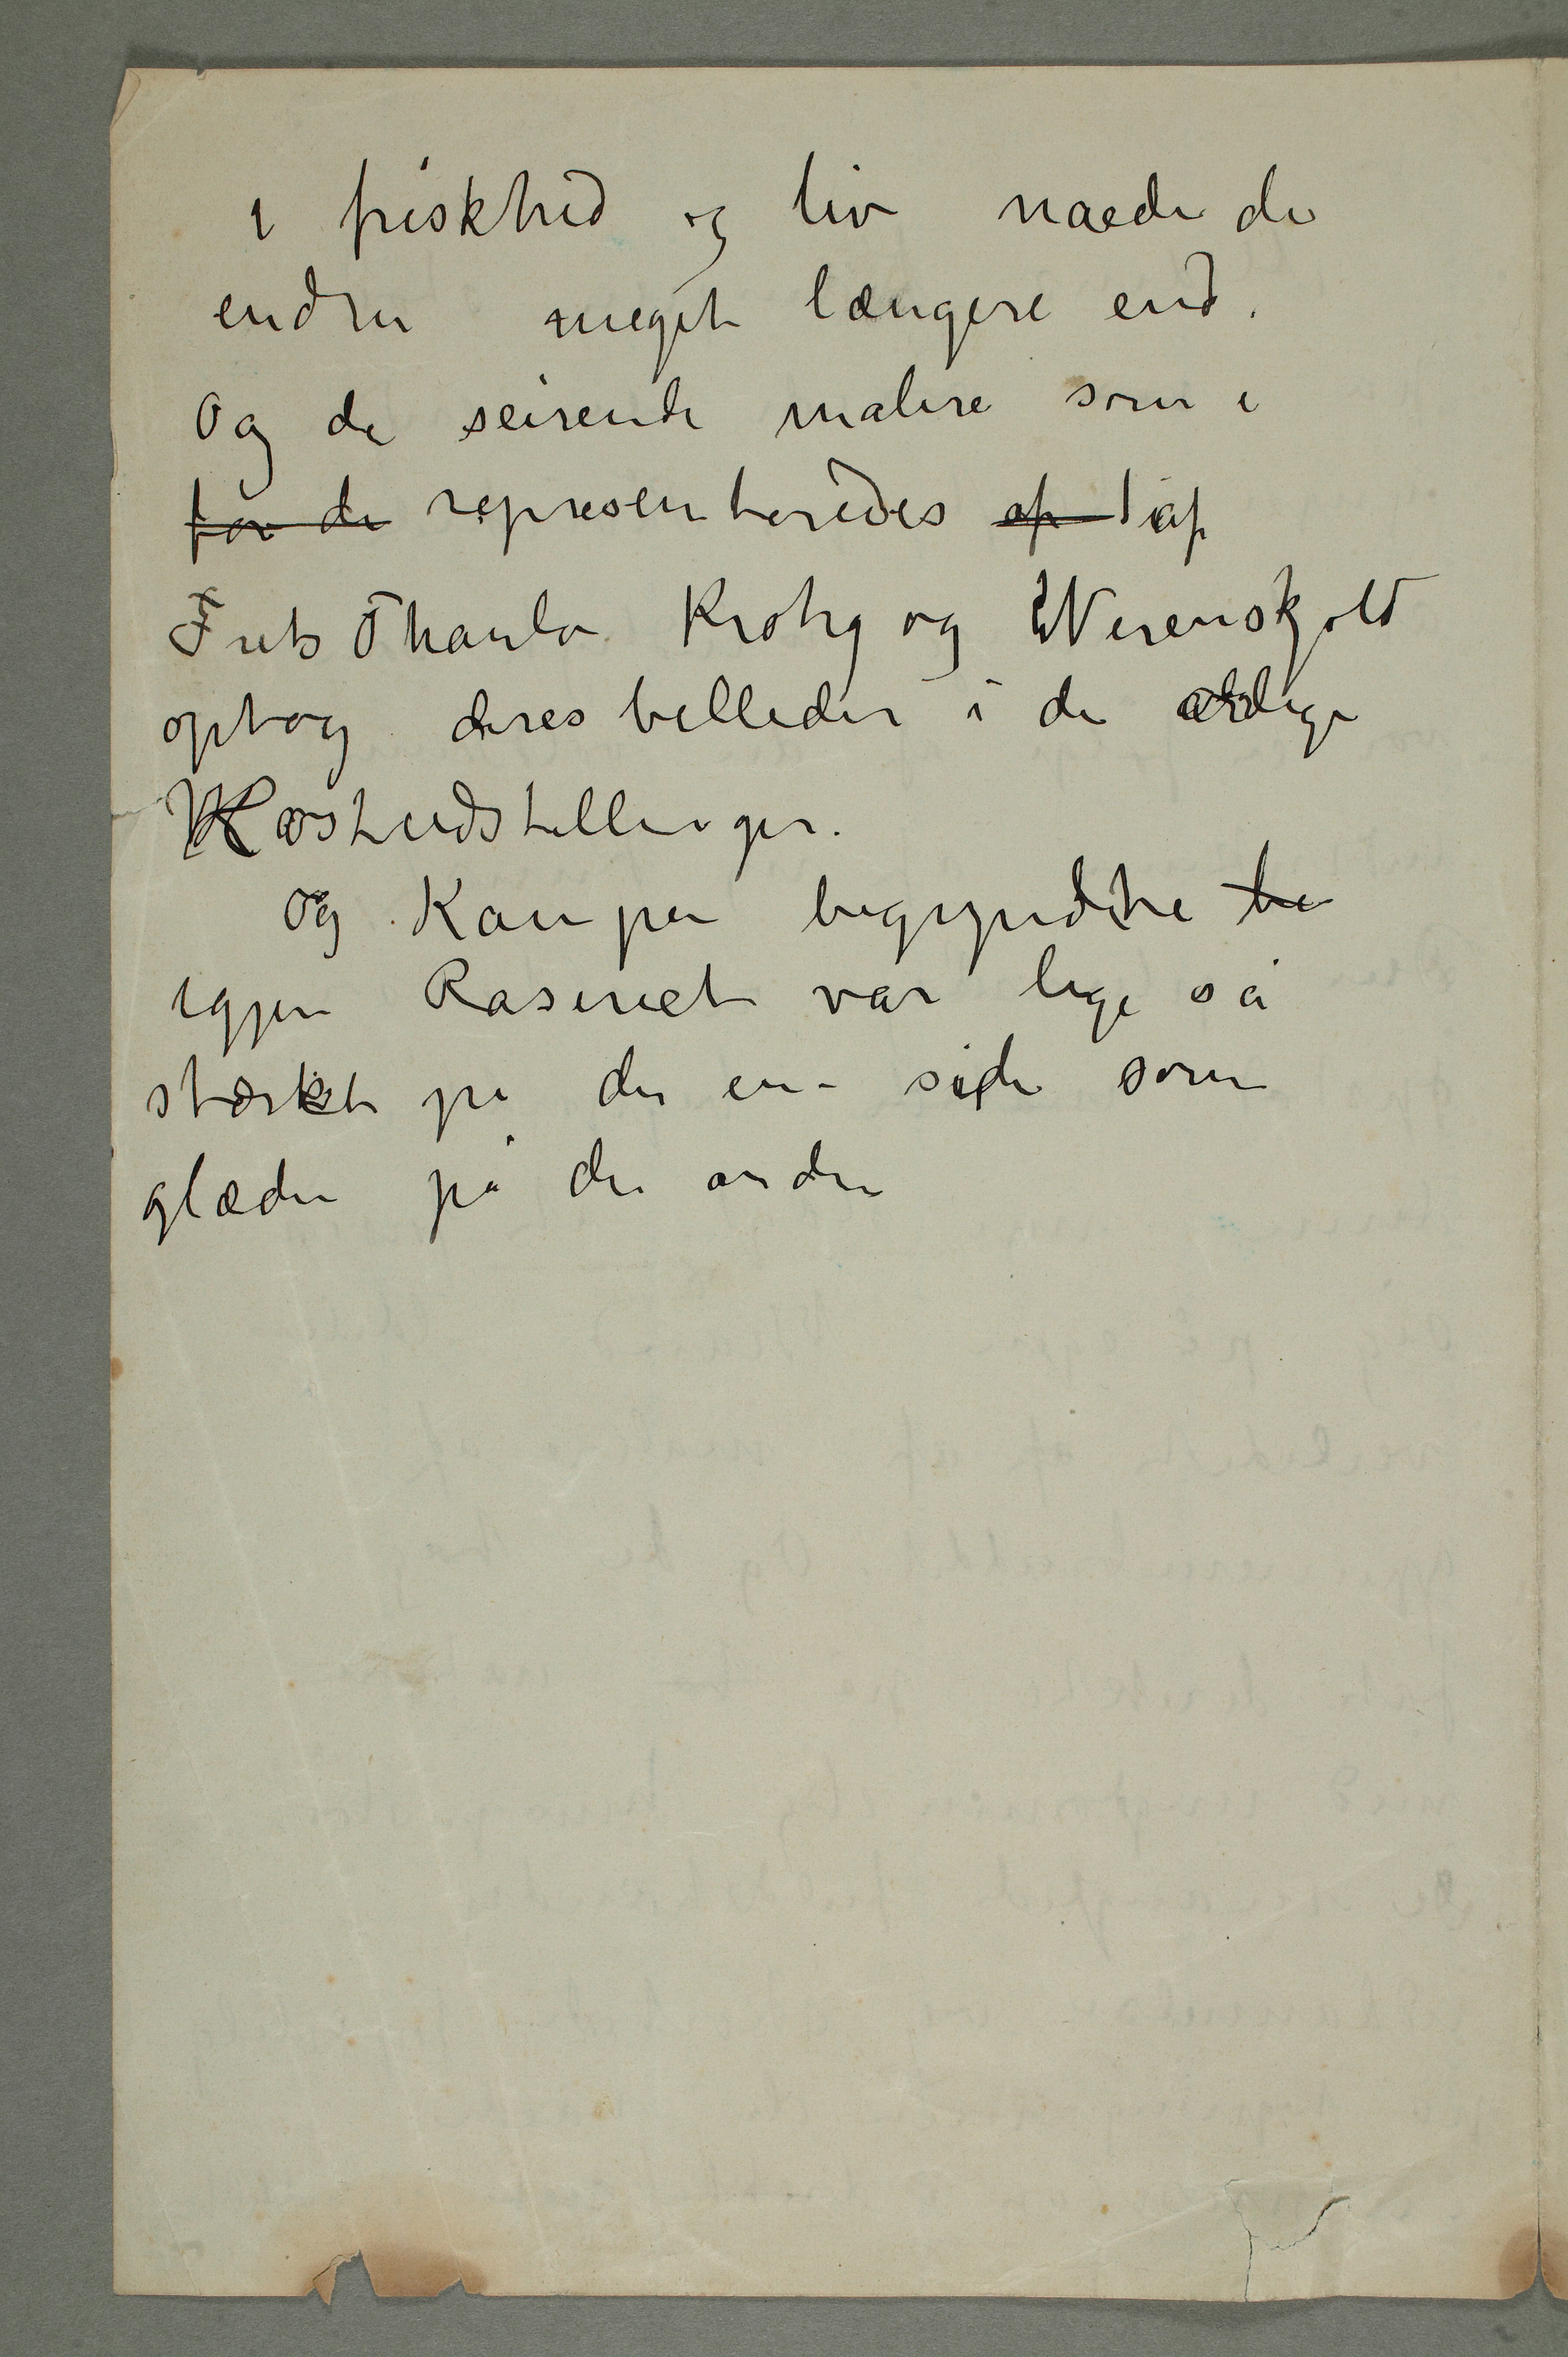 i friskhed og liv naede de
endnu meget længere end.
Og de seirende malere som i
for de representeredes af af
Frits Thaulo Krohg og Werenskjold
optog deres billeder i de årlige
Høstudstillinger.
Og Kampen begyndte be
igjen Raseriet var lige så
stærkt på den en – side som
glæden på den anden